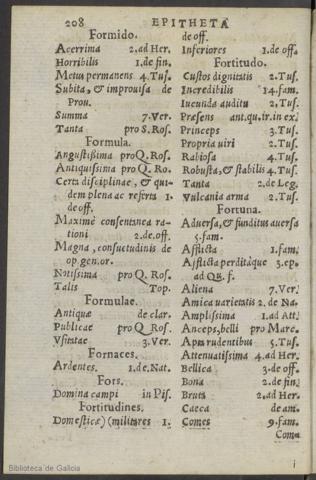 208 EPITHETA
Formido.
Acerrima 2.ad Her.
Horribilis 1.de fin.
Metus permanens 4.Tus.
Subita, & improuisa de
Prou.
Summa 7.Ver.
Tanta pro S.Ros.
Formula.
Angustißima pro Q. Ros.
Antiquissima pro Q. Ro.
Certa disciplinae, & qui-
dem plena ac referta 1.
de off.
Maximè consentanea ra-
tioni 2.de off.
Magna, consuetudinis de
op.gen.or.
Notissima pro Q. Ros.
Talis Top.
Formulae.
Antiquae de clar.
Publicae pro Q. Ros.
Vsitatae 3.Ver.
Fornaces.
Ardentes. 1.de.Nat.
Fors.
Domina campi in Pis.
Fortitudines.
Domesticae)(militares 1.
de off.
Inferiores 1.de off.
Fortitudo.
Custos dignitatis 2.Tus.
Incredibilis 14.fam.
Iucunda auditu 2.Tus.
Praesens ant.qu.ir.in ex.
Princeps 3.Tus.
Propria uiri 2.Tus.
Rabiosa 4.Tus.
Robusta, & stabilis 4.Tus.
Tanta 2.de Leg.
Vulcania arma 2.Tus.
Fortuna.
Aduersa, & funditus auersa
5.fam.
Afflicta 1.fam.
Afflicta perditáque 3.ep.
ad Qu.f.
Aliena 7.Ver.
Amica uarietatis 2.de Na.
Amplissima 1.ad Att.
Anceps, belli pro Marc.
Apta rudentibus 5.Tus.
Attenuatissima 4.ad Her.
Bellica 3.de off.
Bona 2.de fin.
Bruta 2.ad Her.
Caeca de am.
Comes 9.fam.
Comu
i
Biblioteca de Galicia